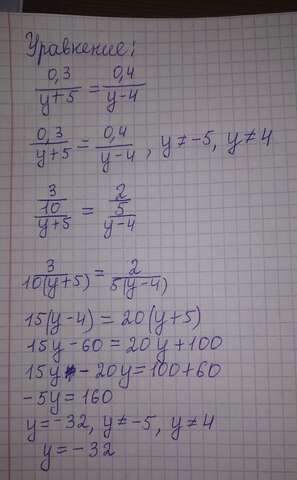 Уравнение:
0,3/(y+5) = 0,4/(y-4)
0,3/(y+5) = 0,4/(y-4), y≠-5, y≠4
(3/10)/(y+5) = (2/5)/(y-4)
3/(10(y+5)) = 2/(5(y-4))
15(y-4) = 20(y+5)
15y-60=20y+100
15y-20y=100+60
-5y=160
y=-32, y≠-5, y≠4
y=-32